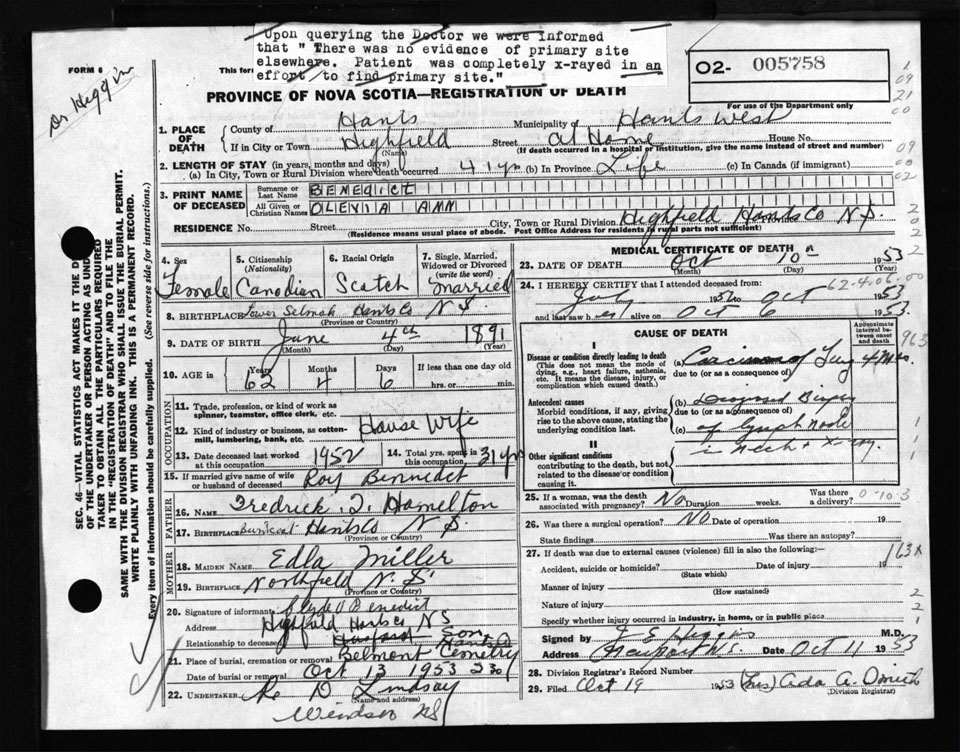 Upon querying the Doctor we were informed
that " There was no evidence of primary site
elsewhere. Patient was completely x-rayed in an
effort to find primary site."
FORM 6
This for
O2- 005758
Dr Higgins
PROVINCE OF NOVA SCOTIA—REGISTRATION OF DEATH
For use of the Department only
1. PLACE OF DEATH
County of Hants Municipality of Hants West
If in City or Town Highfield Street at Home House No.
(Name) (If death occurred in a hospital or institution, give the name instead of street and number)
2. LENGTH OF STAY (in years, months and days)
(a) In City, Town or Rural Division where death occurred 41 yrs (b) In Province Life (c) In Canada (if immigrant)
3. PRINT NAME OF DECEASED
Surname or Last Name BENEDICT
All Given or Christian Names OLEVIA ANN
RESIDENCE No. Street City, Town or Rural Division Highfield Hants Co N.S. Province
(Residence means usual place of abode. Post Office Address for residents in rural parts not sufficient)
4. Sex Female
5. Citizenship (Nationality) Canadian
6. Racial Origin Scotch
7. Single, Married, Widowed or Divorced (write the word) married
8. BIRTHPLACE Lower Selmah Hants Co N.S
(Province or Country)
9. DATE OF BIRTH June 4th 1891
(Month) (Day) (Year)
10. AGE in Years 62 Months 4 Days 6 If less than one day old hrs. or min.
OCCUPATION
11. Trade, profession, or kind of work as spinner, teamster, office clerk, etc.
12. Kind of industry or business, as cotton-mill, lumbering, bank, etc.
House Wife
13. Date deceased last worked at this occupation 1952
14. Total yrs. spent in this occupation 31 yrs
15. If married give name of wife or husband of deceased Roy Bennedict
FATHER
16. Name Fredrick . Hamelton
17. Birthplace Burntcoat Hants Co N S.
(Province or Country)
MOTHER
18. MAIDEN NAME Edla Miller
19. BIRTHPLACE Northfield N. S.
(Province or Country)
20. Signature of informant Clyde Benedict
Address Highfield Hants Co NS
Relationship to deceased Husband Son
21. Place of burial, cremation or removal Belmont Cemetry Hants Co
Date of burial or removal Oct 13 1953 2 30
22. UNDERTAKER D Lindsay
(Name and address)
Windsor NS
MEDICAL CERTIFICATE OF DEATH
23. DATE OF DEATH Oct 10 1953
(Month) (Day) (Year)
24. I HEREBY CERTIFY that I attended deceased from
1952 to Oct 1953
and last saw her alive on Oct 6 1953.
62-4-06.00
CAUSE OF DEATH
Approximate interval between onset and death
I
Disease or condition directly leading to death
(This does not mean the mode of dying, e.g., heart failure, asthenia, etc. It means the disease, injury, or complication which caused death.)
(a) Carcinoma of Lung 4 Mos.
due to (or as a consequence of)
Antecedent causes
Morbid conditions, if any, giving rise to the above cause, stating the underlying condition last.
(b) Diagnosed Biopsy
due to (or as a consequence of)
(c) of lymph node
in neck + X-ray.
II
Other significant conditions
contributing to the death, but not related to the disease or condition causing it.
25. If a woman, was the death associated with pregnancy? No Duration weeks. Was there a delivery?
26. Was there a surgical operation? No Date of operation 19
State findings Was there an autopsy?
27. If death was due to external causes (violence) fill in also the following:—
Accident, suicide or homicide? Date of injury 19
(State which)
Manner of injury
(How sustained)
Nature of injury
Specify whether injury occurred in industry, in home, or in public place
Signed by E Higgins M.D.
Address Newport N.S. Date Oct 11 1953
28. Division Registrar's Record Number
29. Filed Oct 19 1953 (Mrs) Ada A.
(Division Registrar)
SEC. 46—VITAL STATISTICS ACT MAKES IT THE D
OF THE UNDERTAKER OR PERSON ACTING AS UND
TAKER TO OBTAIN ALL THE PARTICULARS REQUIRED
IN THE "REGISTRATION OF DEATH" AND TO FILE THE
SAME WITH THE DIVISION REGISTRAR WHO SHALL ISSUE THE BURIAL PERMIT.
WRITE PLAINLY WITH UNFADING INK. THIS IS A PERMANENT RECORD.
Every item of information should be carefully supplied. (See reverse side for instructions.)